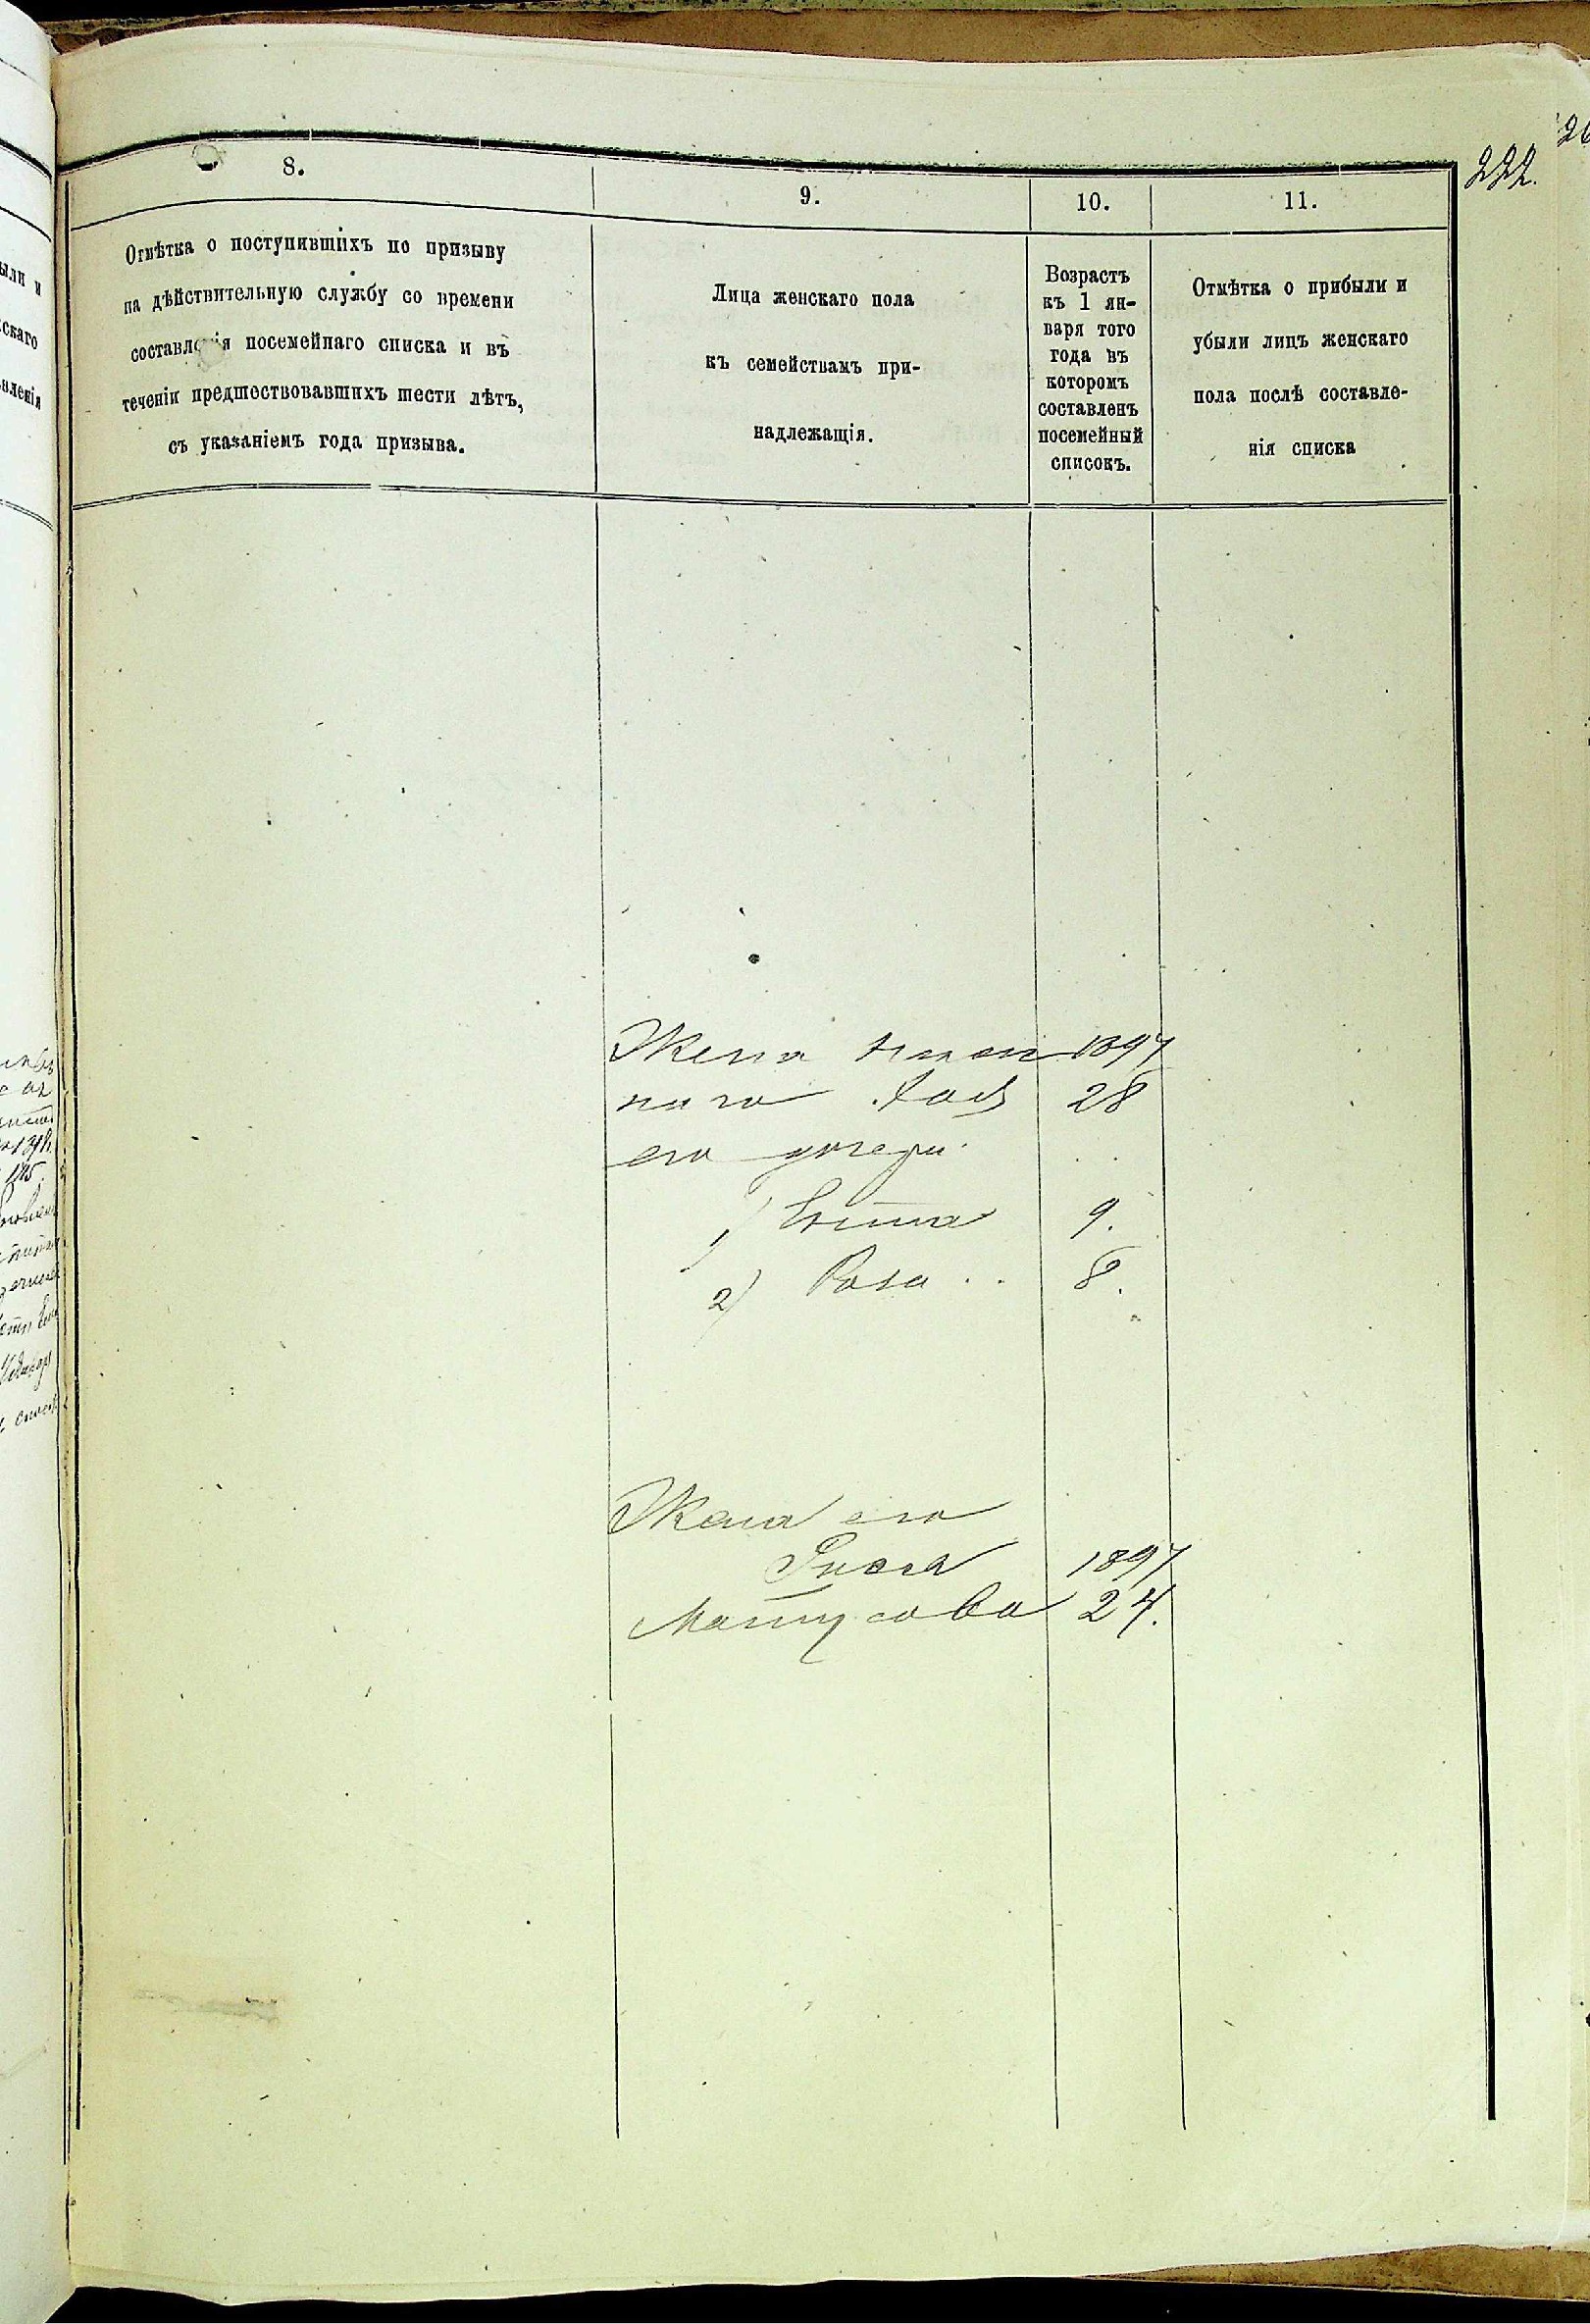 222.
8.
9.
10.
11.
Отмѣтка о поступившихъ по призыву
на дѣйствительную службу со времени
составленія посемейнаго списка и въ
теченіи предшествовавшихъ шести лѣтъ,
съ указаніемъ года призыва.
Лица женскаго пола
къ семействамъ при-
надлежащія.
Возрастъ
къ 1 ян-
варя того
года въ
которомъ
составленъ
посемейный
списокъ.
Отмѣтка о прибыли и
убыли лицъ женскаго
пола послѣ составле-
нія списка
Жена 1897
28
его дочери
1) 9.
2) Роза . . 8.
Жена его
1897
Матусова 24.